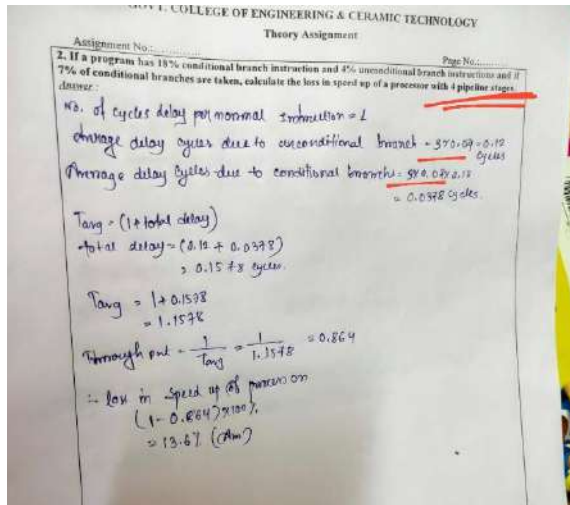 GOVT. COLLEGE OF ENGINEERING & CERAMIC TECHNOLOGY
Theory Assignment
Assignment No.:............... Page No..........
2. If a program has 18% conditional branch instruction and 4% unconditional branch instructions and if
7% of conditional branches are taken, calculate the loss in speed up of a processor with 4 pipeline stages.
Answer:
No. of cycles delay per normal = 1
Average delay cycles due to unconditional branch = 3×0.04 = 0.12
cycles
Average delay cycles due to conditional branch = 3×0.07×0.18
= 0.0378 cycles.
Tavg = (1+total delay)
total delay = (0.12 + 0.0378)
= 0.1578 cycles.
Tavg = 1+0.1578
= 1.1578
Through put = 1/Tavg = 1/1.1578 = 0.864
∴ loss in speed up of
(1-0.864)×100%
= 13.6% (Ans)